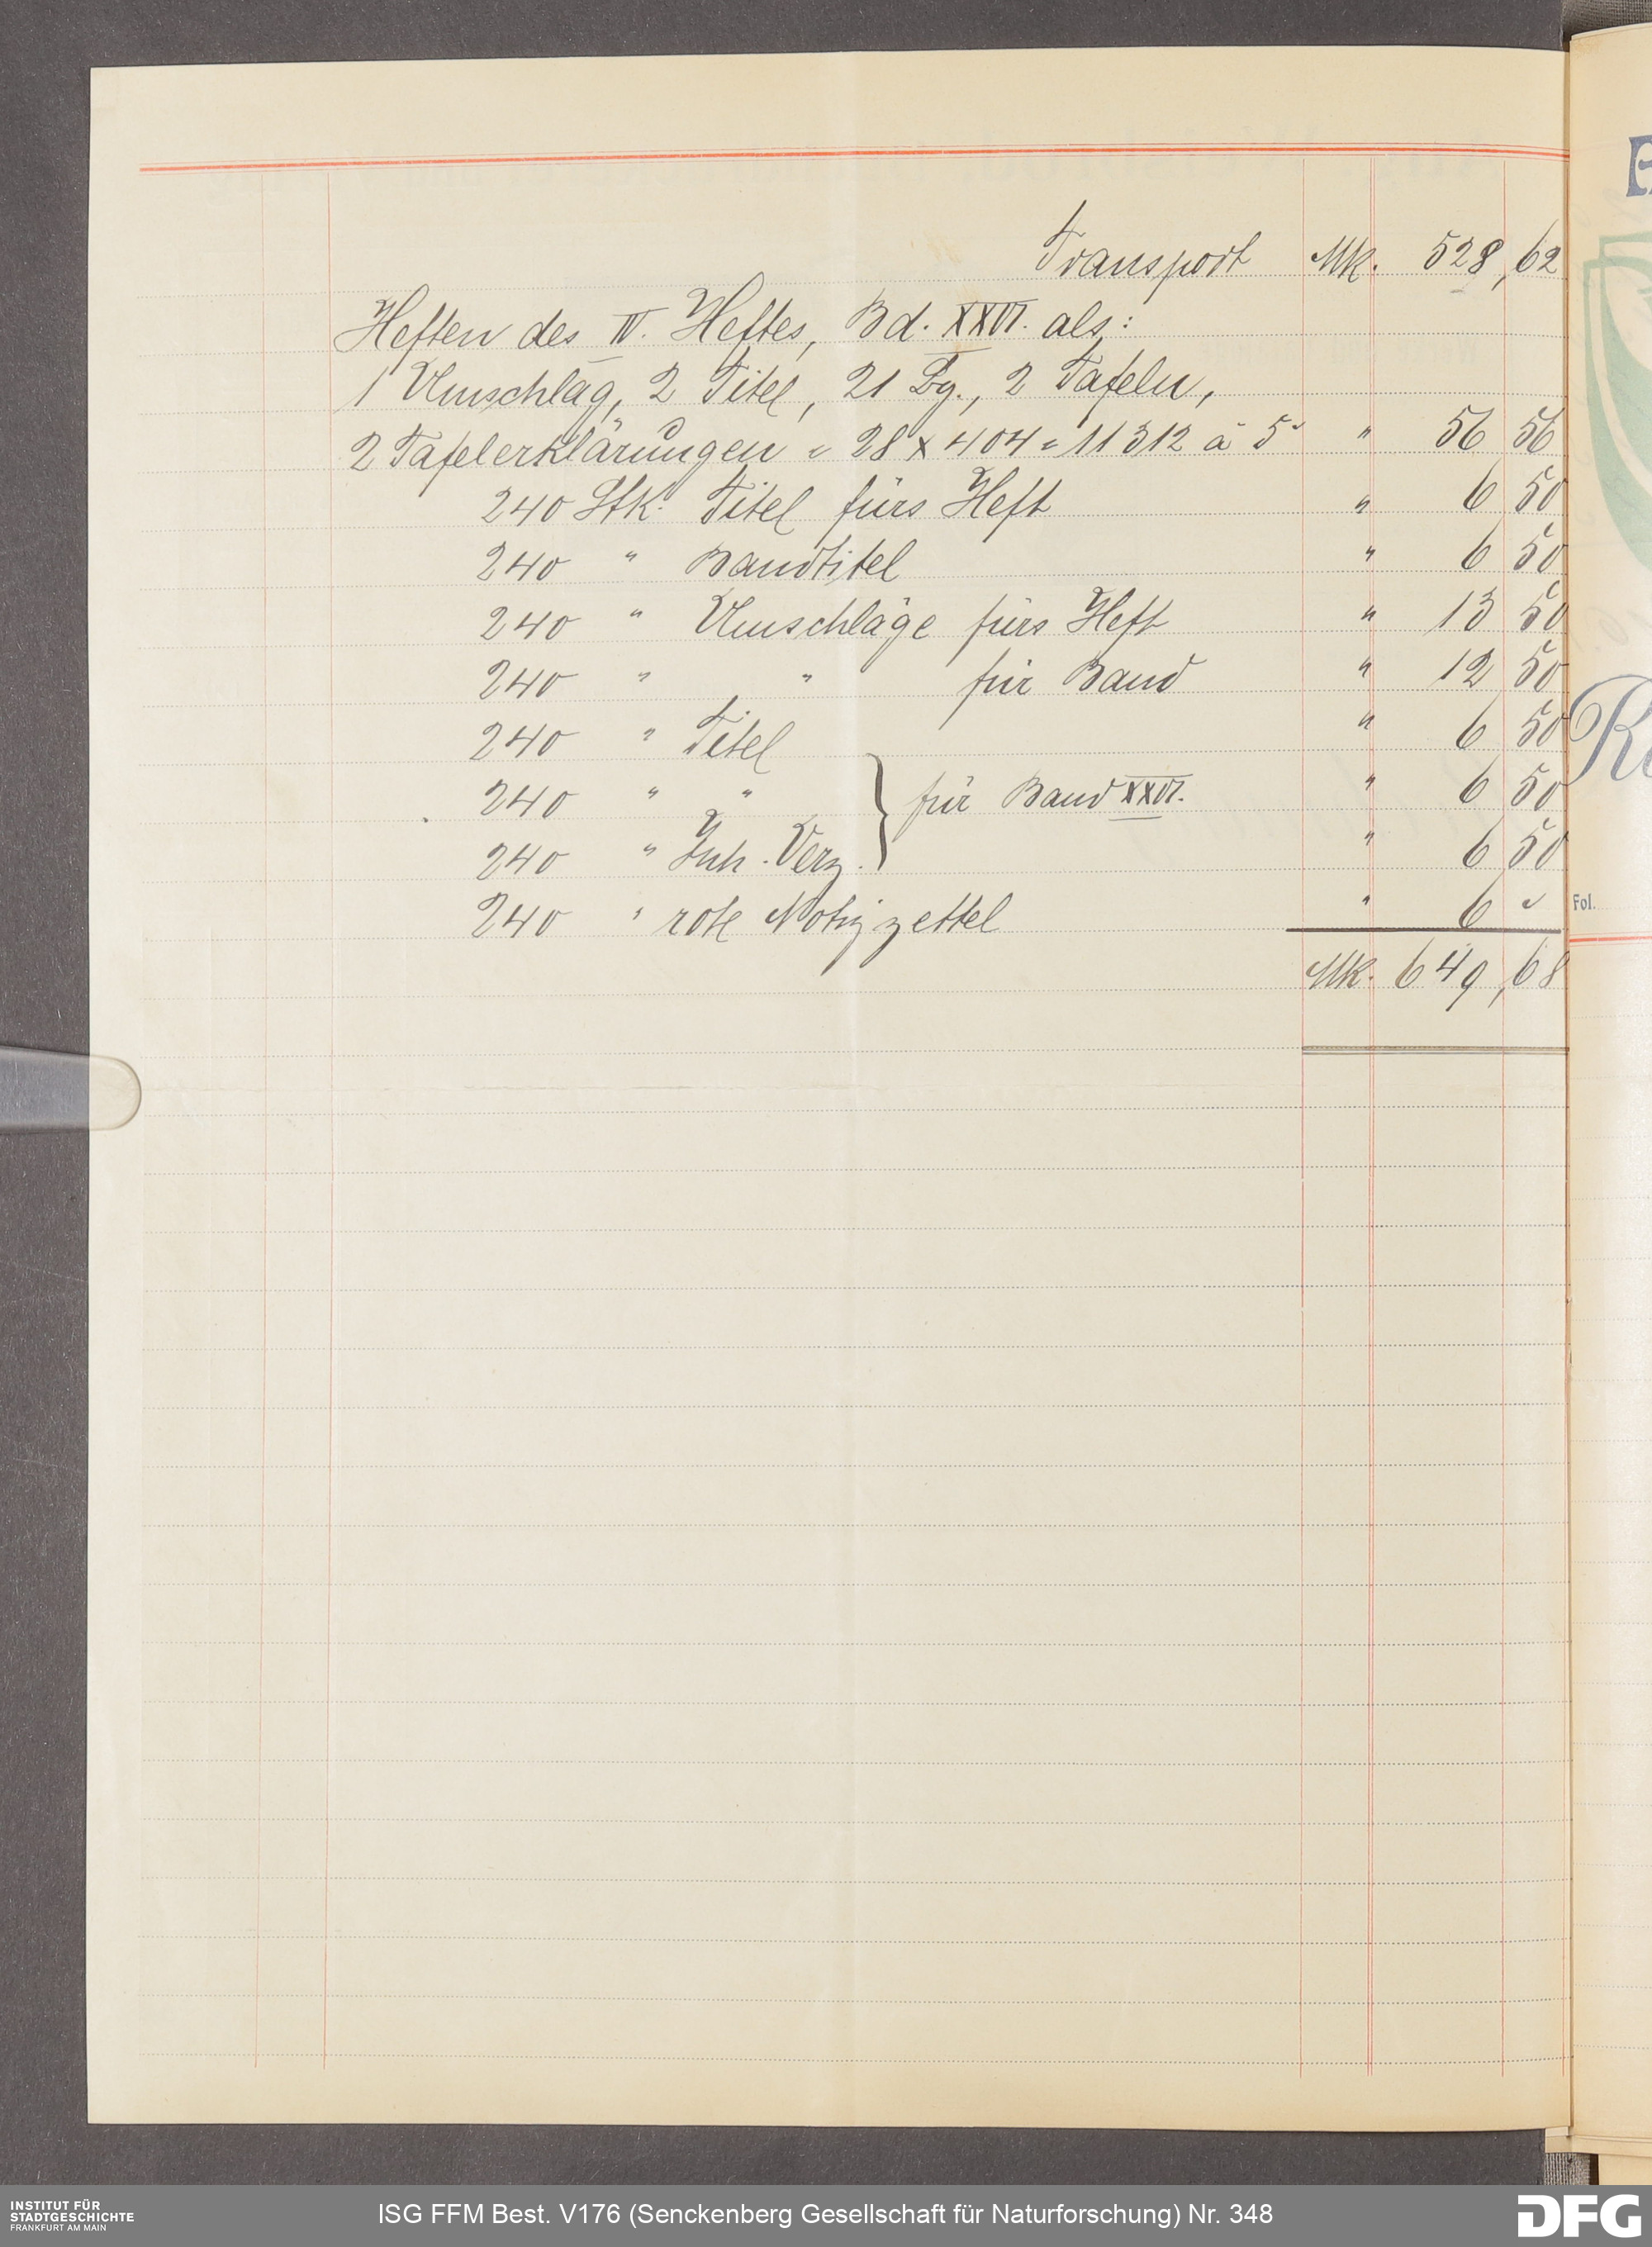 Transport Mk. 528,62
Heften des IV. Heftes, Bd. XXVI. als:
1 Umschlag, 2 Titel, 21 Bg., 2 Tafeln,
2 Tafelerklärungen = 28 x 404 = 11312 à 5 " 56 56
240 Stk. Titel fürs Heft " 6 50
240 " Bandtitel " 6 50
240 " Umschläge fürs Heft " 13 50
240 " " für Band " 12 50
240 " Titel " 6 50
240 " " } für Band XXVI. " 6 50
240 " Inh. Verz. " 6 50
240 " rote Notizzettel " 6 "
Mk. 649,68
Fol.
INSTITUT FÜR
STADTGESCHICHTE
FRANKFURT AM MAIN
ISG FFM Best. V176 (Senckenberg Gesellschaft für Naturforschung) Nr. 348
DFG